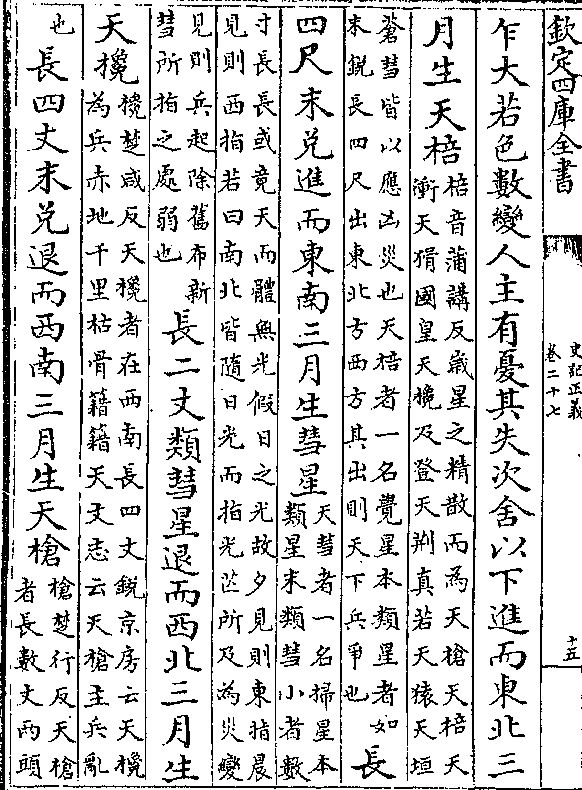 欽定四庫全書
史記正義
卷二十七
十五
乍大若色數變人主有憂其失次舍以下進而東北三
月生天棓
棓音蒲講反嵗星之精散而為天槍天棓天
衝天猾國皇天欃及登天荆真若天猿天垣
蒼彗皆以應凶災也天棓者一名覺星本類星者如
末銳長四尺出東北方西方其出則天下兵爭也
長
四尺末兌進而東南三月生彗星
天彗者一名掃星本
類星末類彗小者數
寸長長或竟天而體無光假日之光故夕見則東指晨
見則西指若曰南北皆隨日光而指光芒所及為災變
見則兵起除舊布新
彗所指之處弱也
長二丈類彗星退而西北三月生
天欃
欃楚咸反天欃者在西南長四丈銳京房云天欃
為兵赤地千里枯骨籍籍天文志云天槍主兵亂
也
長四丈末兌退而西南三月生天槍
槍楚行反天槍
者長數丈兩頭